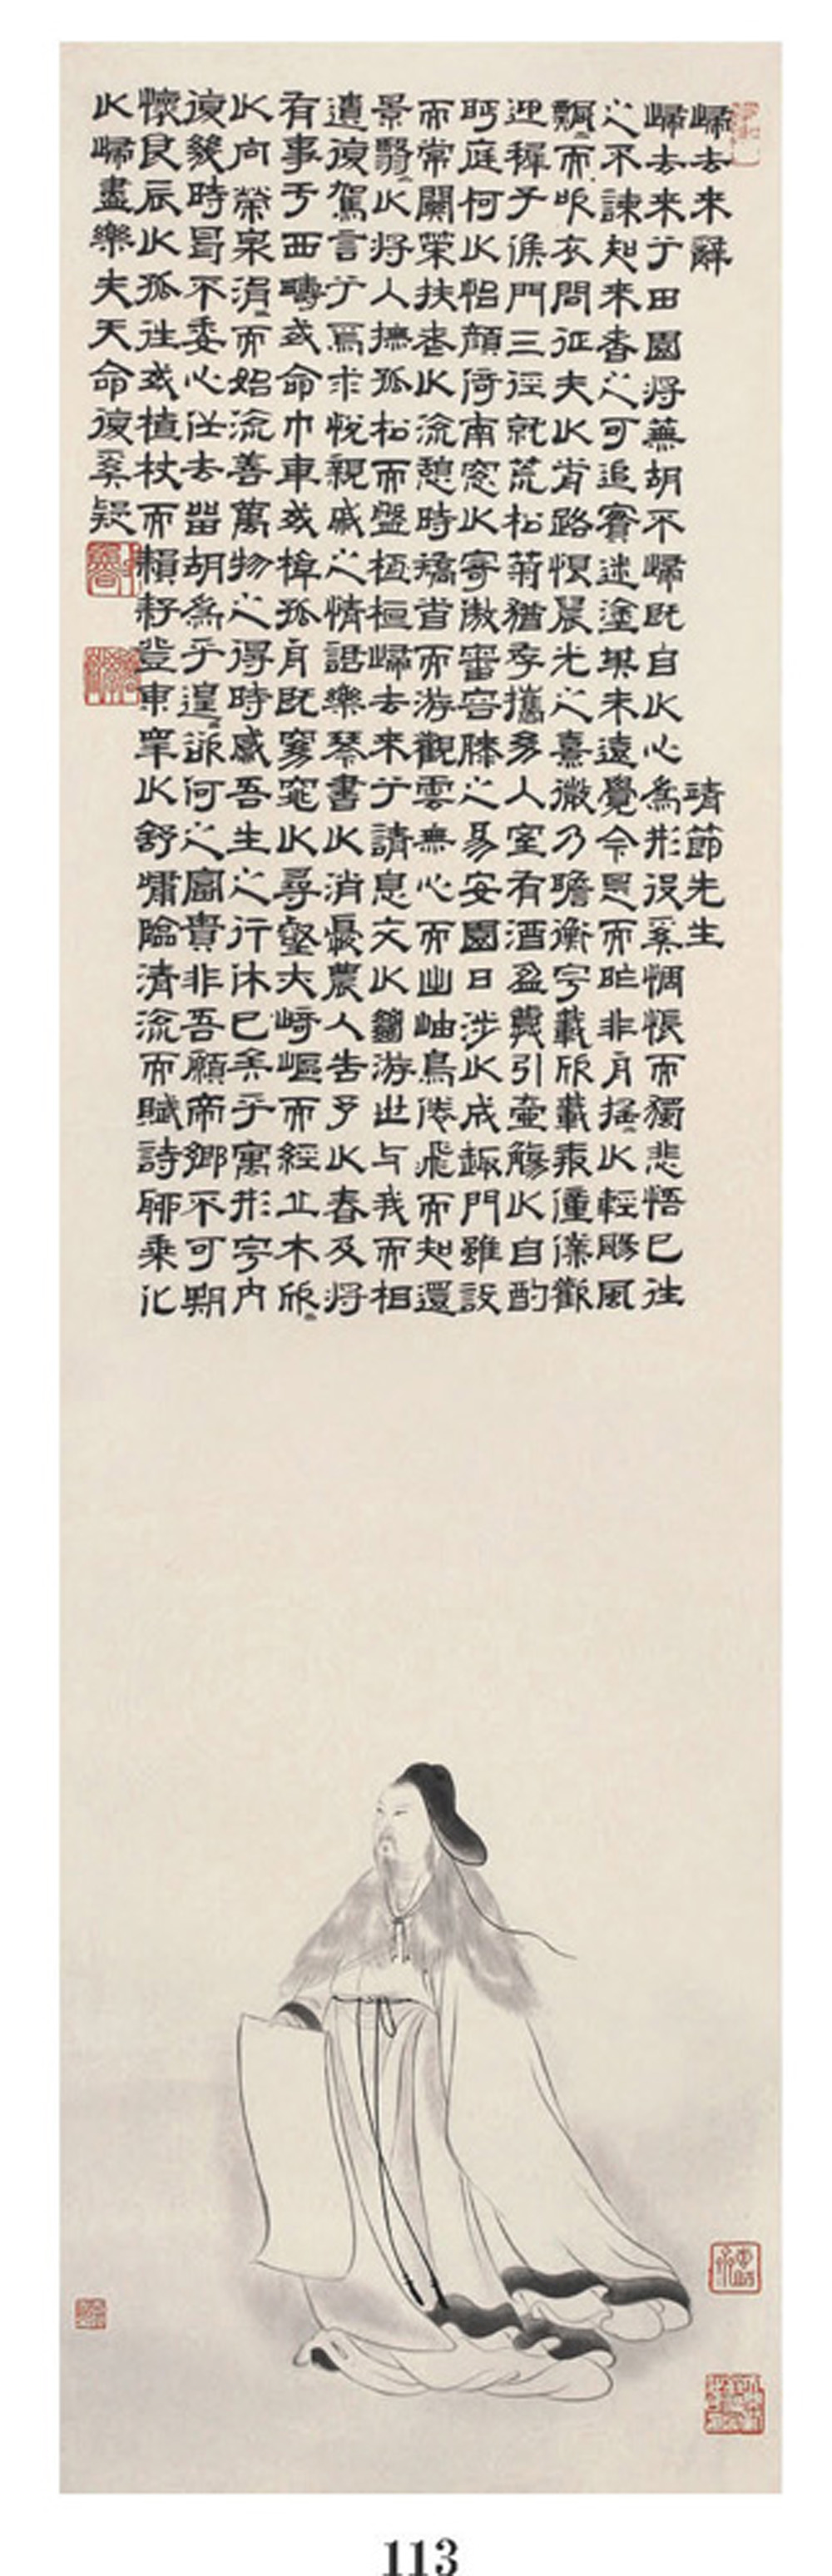 歸去来辭 靖節先生
歸去来兮田園將蕪胡不歸既自以心為形役奚惆悵而獨悲悟已往
之不諫知来者之可追實迷塗其未遠覺今是而昨非舟搖〻以輕颺風
飄〻而吹衣問征夫以前路恨晨光之熹微乃瞻衡宇載欣載奔僮僕歡
迎稚子候門三徑就荒松菊猶存攜幼入室有酒盈樽引壺觴以自酌
眄庭柯以怡顏倚南窓以寄傲審容膝之易安園日涉以成趣門雖設
而常關策扶老以流憩時矯首而游觀雲無心而出岫鳥倦飛而知還
景翳〻以將入撫孤松而盤桓歸去来兮請息交以絕游世与我而相
遺復駕言兮焉求悅親戚之情話樂琴書以消憂農人告予以春及將
有事于西疇或命巾車或棹孤舟既窈窕以尋壑亦崎嶇而經丘木欣〻
以向榮泉涓〻而始流善萬物之得時感吾生之行休已矣乎寓形宇内
復幾時曷不委心任去留胡為乎遑〻欲何之富貴非吾願帝鄉不可期
懷良辰以孤往或植杖而耘耔登東皋以舒嘯臨清流而賦詩聊乘化
以歸盡樂夫天命復奚疑
113